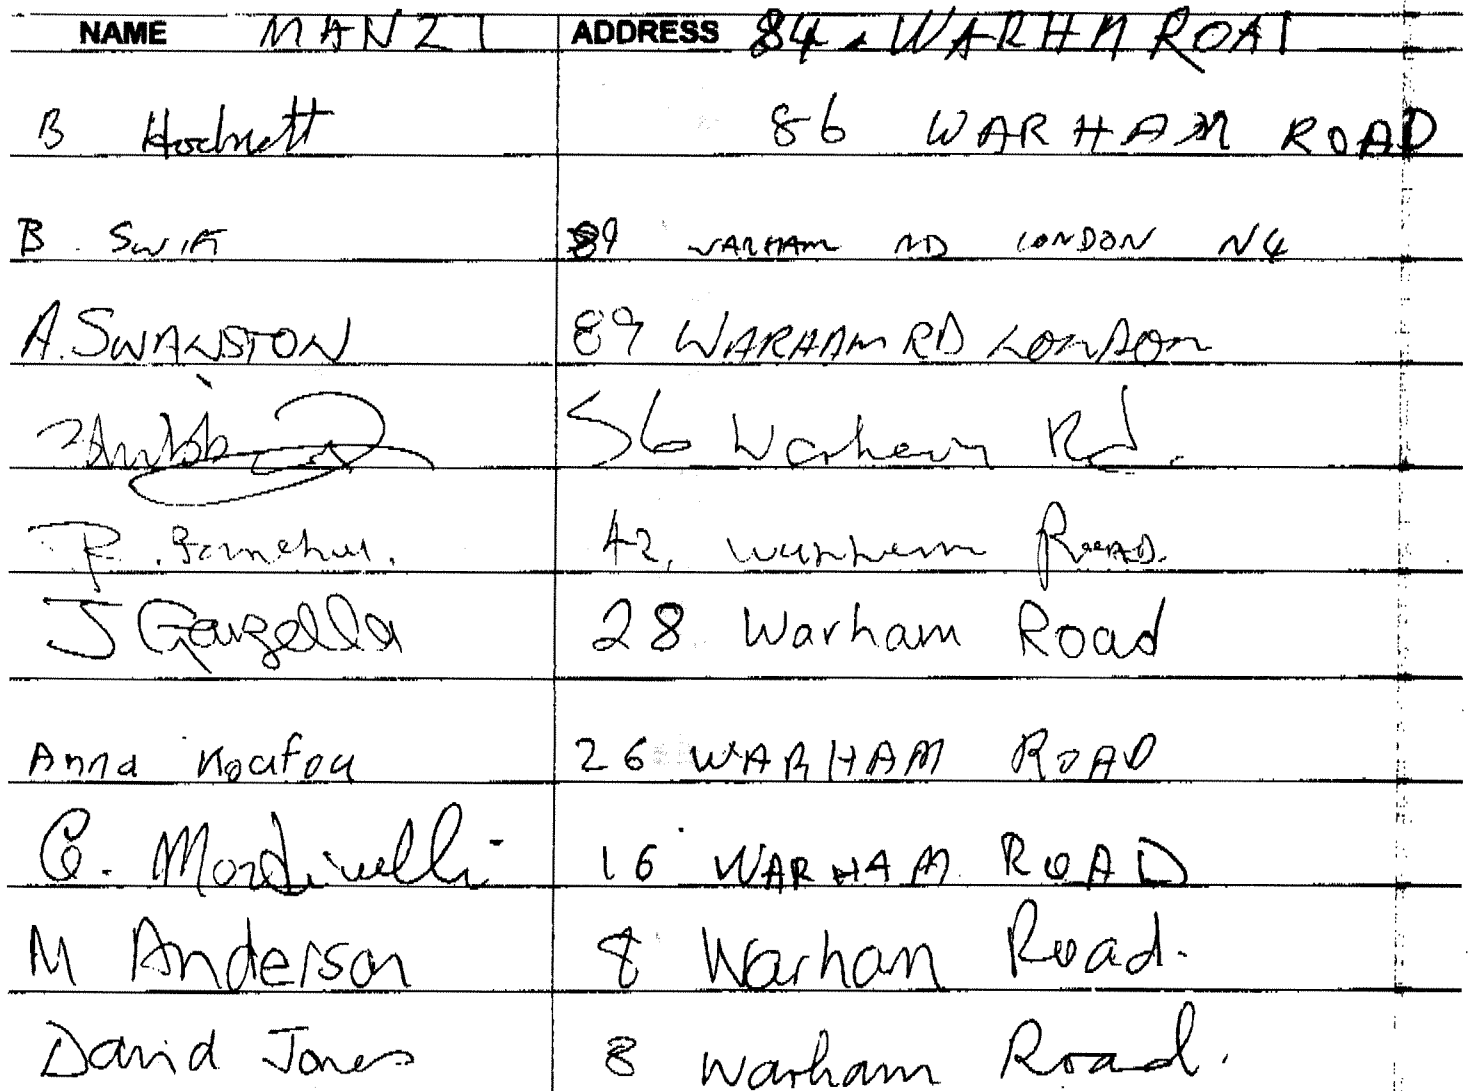 NAME MANZI ADDRESS 84 WARHAM ROAD
B Hodnett 86 WARHAM ROAD
B. SWIFT 89 WARHAM RD LONDON N4
A. SWANSTON 89 WARHAM RD LONDON
56 Warham Rd.
R. 42, Warham Road.
J Garzella 28 Warham Road
Anna Koafou 26 WARHAM ROAD
G. 16 WARHAM ROAD
M Anderson 8 Warham Road.
David Jones 8 Warham Road.